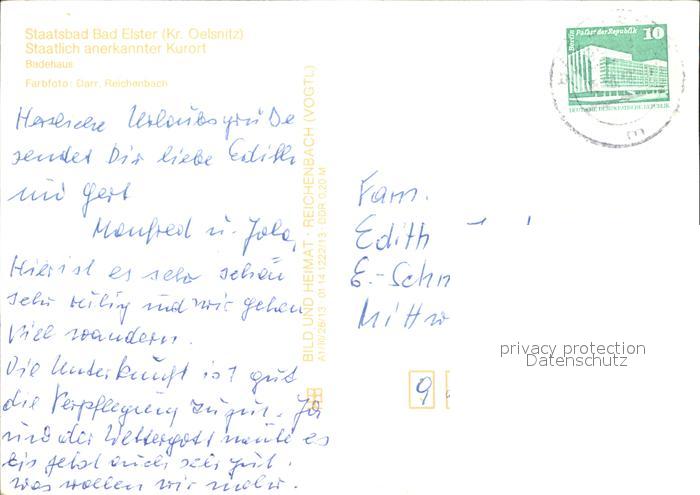 Staatsbad Bad Elster (Kr. Oelsnitz)
Staatlich anerkannter Kurort
Badehaus
Farbfoto: Darr, Reichenbach
Herzliche Urlaubsgrüße
sendet Dir liebe Edith
und Gert
Manfred u. Jola
Hier ist es sehr schön
sehr ruhig und wir gehen
viel wandern.
Die Unterkunft ist gut
die Verpflegung zu gut. Ja
und der Wettergott meinte es
bis jetzt auch sehr gut.
was wollen wir mehr.
BILD UND HEIMAT · REICHENBACH (VOGTL)
A1/III/26/13 01 14 1222/13 DDR 0,20 M
Berlin Palast der Republik
10
DEUTSCHE DEMOKRATISCHE REPUBLIK
Fam.
Edith
E.-Schn
Mittw
9
privacy protection
Datenschutz